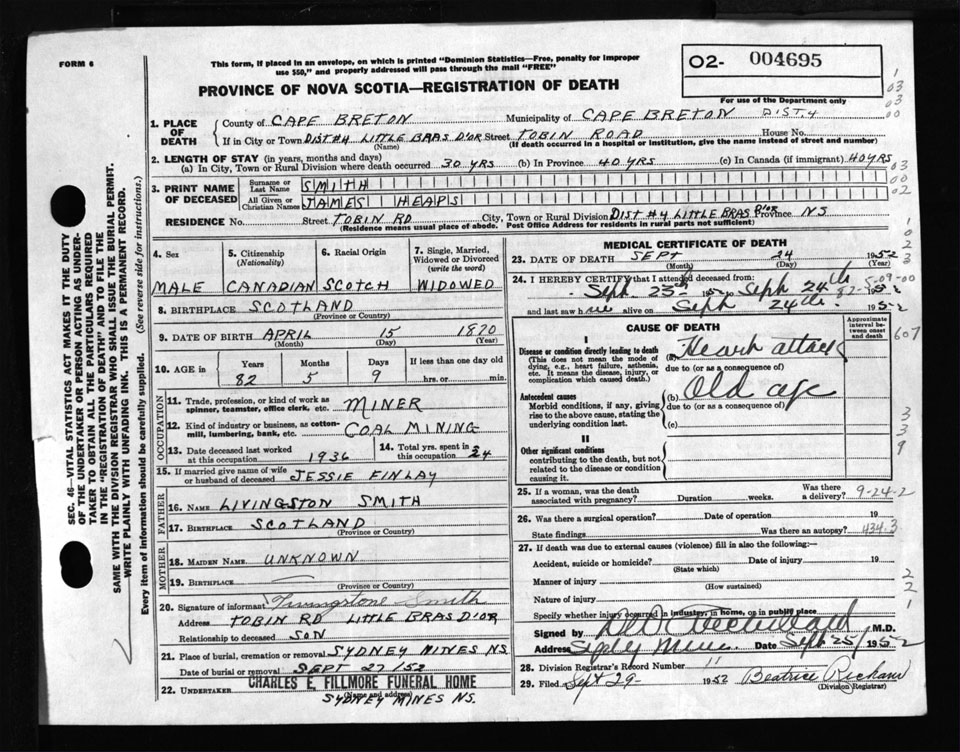 FORM 6
This form, if placed in an envelope, on which is printed "Dominion Statistics—Free, penalty for improper
use $50," and properly addressed will pass through the mail "FREE"
PROVINCE OF NOVA SCOTIA—REGISTRATION OF DEATH
O2- 004695
For use of the Department only
1. PLACE OF DEATH
County of CAPE BRETON Municipality of CAPE BRETON DIST 4
If in City or Town DIST #4 LITTLE BRAS D'OR Street TOBIN ROAD House No.
(Name) (If death occurred in a hospital or institution, give the name instead of street and number)
2. LENGTH OF STAY (in years, months and days)
(a) In City, Town or Rural Division where death occurred 30 YRS (b) In Province 40 YRS (c) In Canada (if immigrant) 40 YRS
3. PRINT NAME OF DECEASED
Surname or Last Name SMITH
All Given or Christian Names JAMES HEAPS
RESIDENCE No. Street TOBIN RD City, Town or Rural Division DIST #4 LITTLE BRAS D'OR Province NS
(Residence means usual place of abode. Post Office Address for residents in rural parts not sufficient)
4. Sex
MALE
5. Citizenship (Nationality)
CANADIAN
6. Racial Origin
SCOTCH
7. Single, Married, Widowed or Divorced (write the word)
WIDOWED
8. BIRTHPLACE SCOTLAND
(Province or Country)
9. DATE OF BIRTH APRIL 15 1870
(Month) (Day) (Year)
10. AGE in Years Months Days If less than one day old
82 5 9 hrs. or min.
OCCUPATION
11. Trade, profession, or kind of work as spinner, teamster, office clerk, etc. MINER
12. Kind of industry or business, as cotton-mill, lumbering, bank, etc. COAL MINING
13. Date deceased last worked at this occupation 1936
14. Total yrs. spent in this occupation 24
15. If married give name of wife or husband of deceased JESSIE FINLAY
FATHER
16. NAME LIVINGSTON SMITH
17. BIRTHPLACE SCOTLAND
(Province or Country)
MOTHER
18. MAIDEN NAME UNKNOWN
19. BIRTHPLACE
(Province or Country)
20. Signature of informant Livingstone Smith
Address TOBIN RD LITTLE BRAS D'OR
Relationship to deceased SON
21. Place of burial, cremation or removal SYDNEY MINES NS.
Date of burial or removal SEPT 27/52
22. UNDERTAKER CHARLES E. FILLMORE FUNERAL HOME
(Name and address)
SYDNEY MINES NS.
MEDICAL CERTIFICATE OF DEATH
23. DATE OF DEATH SEPT 24 1952
(Month) (Day) (Year)
24. I HEREBY CERTIFY that I attended deceased from:
Sept. 23rd 1952 to Sept 24th 1952
and last saw h alive on Sept 24th 1952
CAUSE OF DEATH
Approximate interval between onset and death
I
Disease or condition directly leading to death
(This does not mean the mode of dying, e.g., heart failure, asthenia, etc. It means the disease, injury, or complication which caused death.)
(a) Heart attack
due to (or as a consequence of)
Antecedent causes
Morbid conditions, if any, giving rise to the above cause, stating the underlying condition last.
(b) Old age
due to (or as a consequence of)
(c)
II
Other significant conditions
contributing to the death, but not related to the disease or condition causing it.
25. If a woman, was the death associated with pregnancy? Duration weeks. Was there a delivery? 9-24-2
26. Was there a surgical operation? Date of operation 19
State findings Was there an autopsy? 434-3
27. If death was due to external causes (violence) fill in also the following:—
Accident, suicide or homicide? Date of injury 19
(State which)
Manner of injury
(How sustained)
Nature of injury
Specify whether injury occurred in industry, in home, or in public place
Signed by M.D.
Address Sydney Mines Date Sept 25/ 1952
28. Division Registrar's Record Number 11
29. Filed Sept 29- 1952 Beatrice
(Division Registrar)
SEC. 46—VITAL STATISTICS ACT MAKES IT THE DUTY
OF THE UNDERTAKER OR PERSON ACTING AS UNDER-
TAKER TO OBTAIN ALL THE PARTICULARS REQUIRED
IN THE "REGISTRATION OF DEATH" AND TO FILE THE
SAME WITH THE DIVISION REGISTRAR WHO SHALL ISSUE THE BURIAL PERMIT.
WRITE PLAINLY WITH UNFADING INK. THIS IS A PERMANENT RECORD.
Every item of information should be carefully supplied. (See reverse side for instructions.)
607